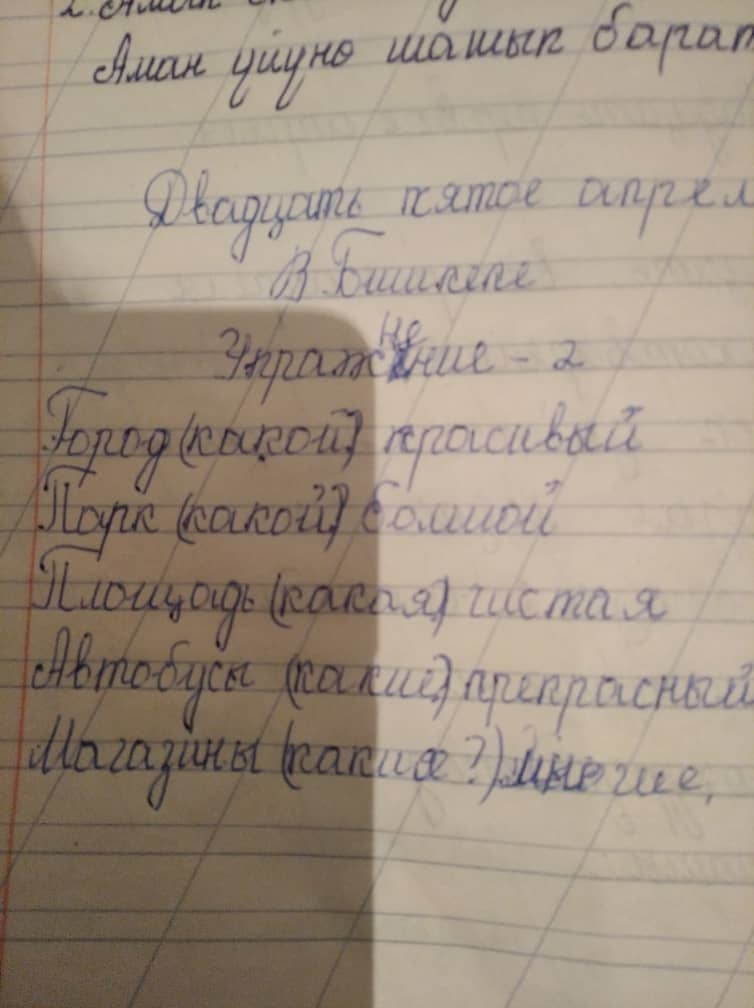 2. Аман
Аман үйүнө шашып барат
Двадцать пятое апрел
В Бшикеке
Упражнение - 2
Город (какой) красивый
Парк (какой) болшой
Площадь (какая) чистая
Автобусы (какие) прекрасный
Магазины (какие?) многие,